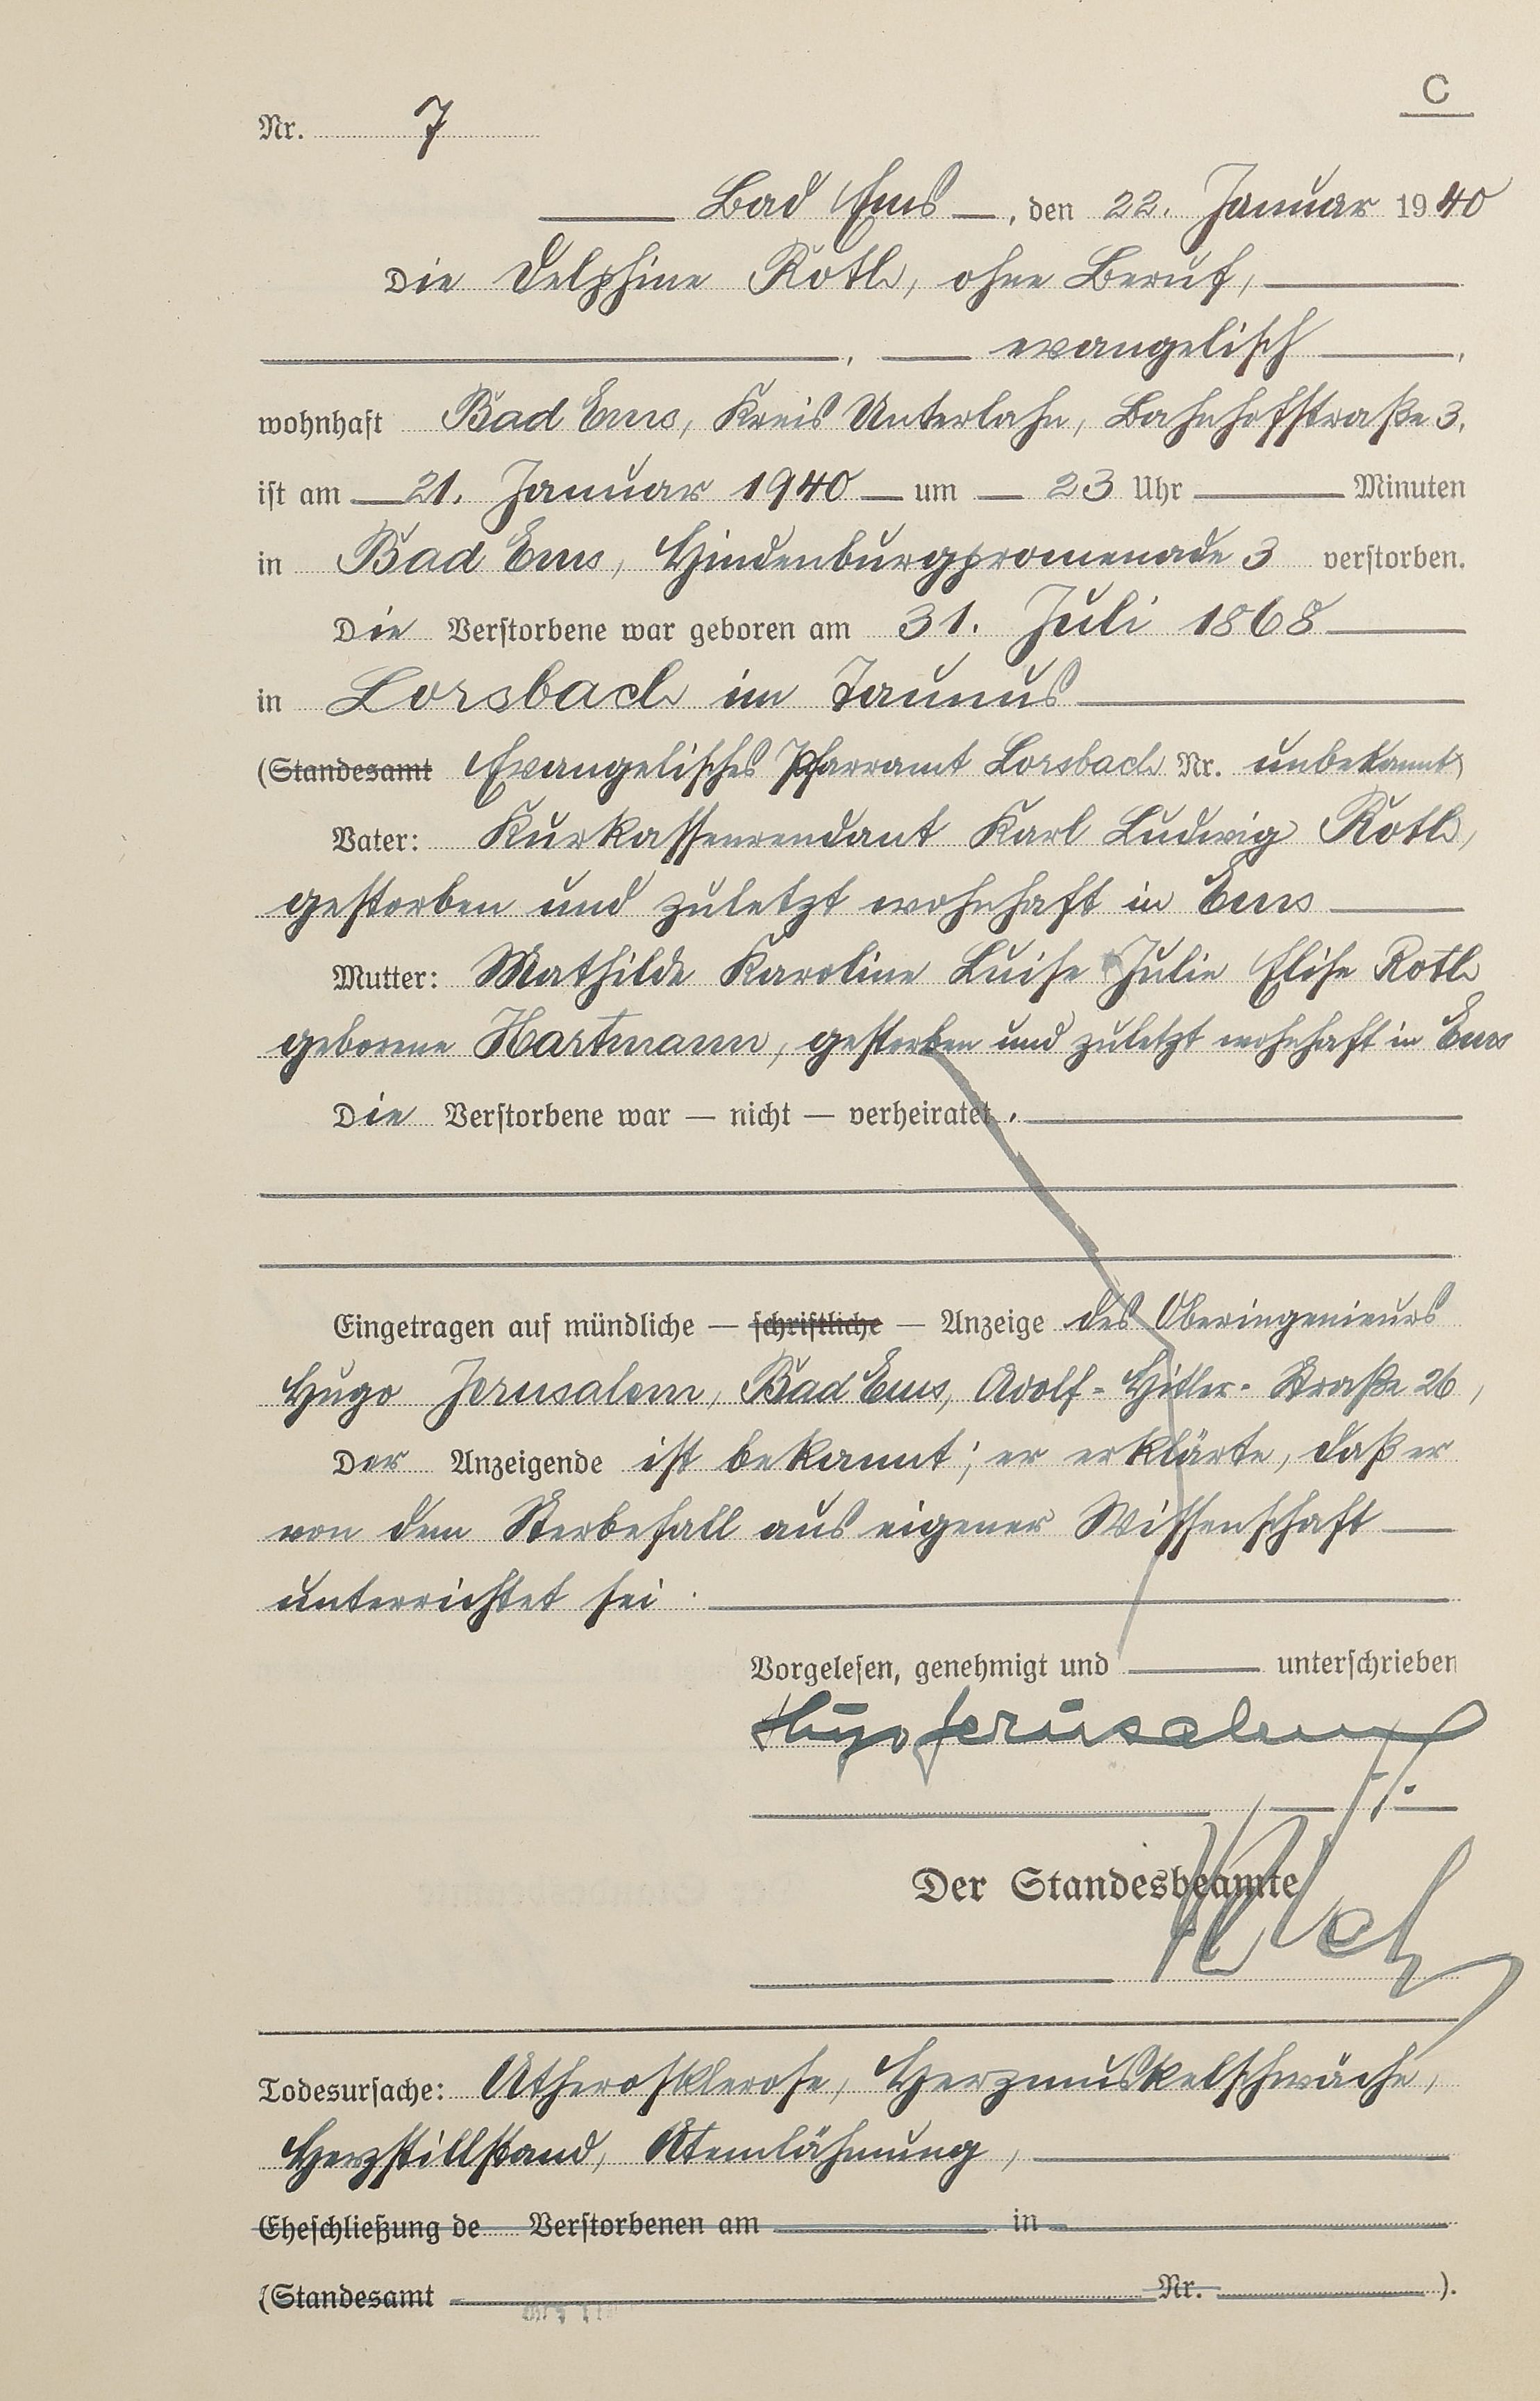 C
Nr. 7
Bad Ems, den 22. Januar 1940
Die Delphine Roth, ohne Beruf,
, evangelisch,
wohnhaft Bad Ems, Kreis Unterlahn, Bahnhofstraße 3,
ist am 21. Januar 1940 um 23 Uhr Minuten
in Bad Ems, Hindenburgpromenade 3 verstorben.
Die Verstorbene war geboren am 31. Juli 1868
in Lorsbach im Taunus
(Standesamt Evangelisches Pfarramt Lorsbach Nr. unbekannt)
Vater: Kurkassenrendant Karl Ludwig Roth,
gestorben und zuletzt wohnhaft in Ems
Mutter: Mathilde Karoline Luise Julie Elise Roth
geborene Hartmann, gestorben und zuletzt wohnhaft in Ems
Die Verstorbene war — nicht — verheiratet.
Eingetragen auf mündliche — schriftliche — Anzeige des Oberingenieurs
Hugo Jerusalem, Bad Ems, Adolf-Hitler-Straße 26,
Der Anzeigende ist bekannt; er erklärte, daß er
von dem Sterbefall aus eigener Wissenschaft
unterrichtet sei.
Vorgelesen, genehmigt und unterschrieben
Hugo Jerusalem
Der Standesbeamte
Todesursache: Atherosklerose, Herzmuskelschwäche,
Herzstillstand, Atemlähmung,
Eheschließung de Verstorbenen am in
(Standesamt Nr. ).